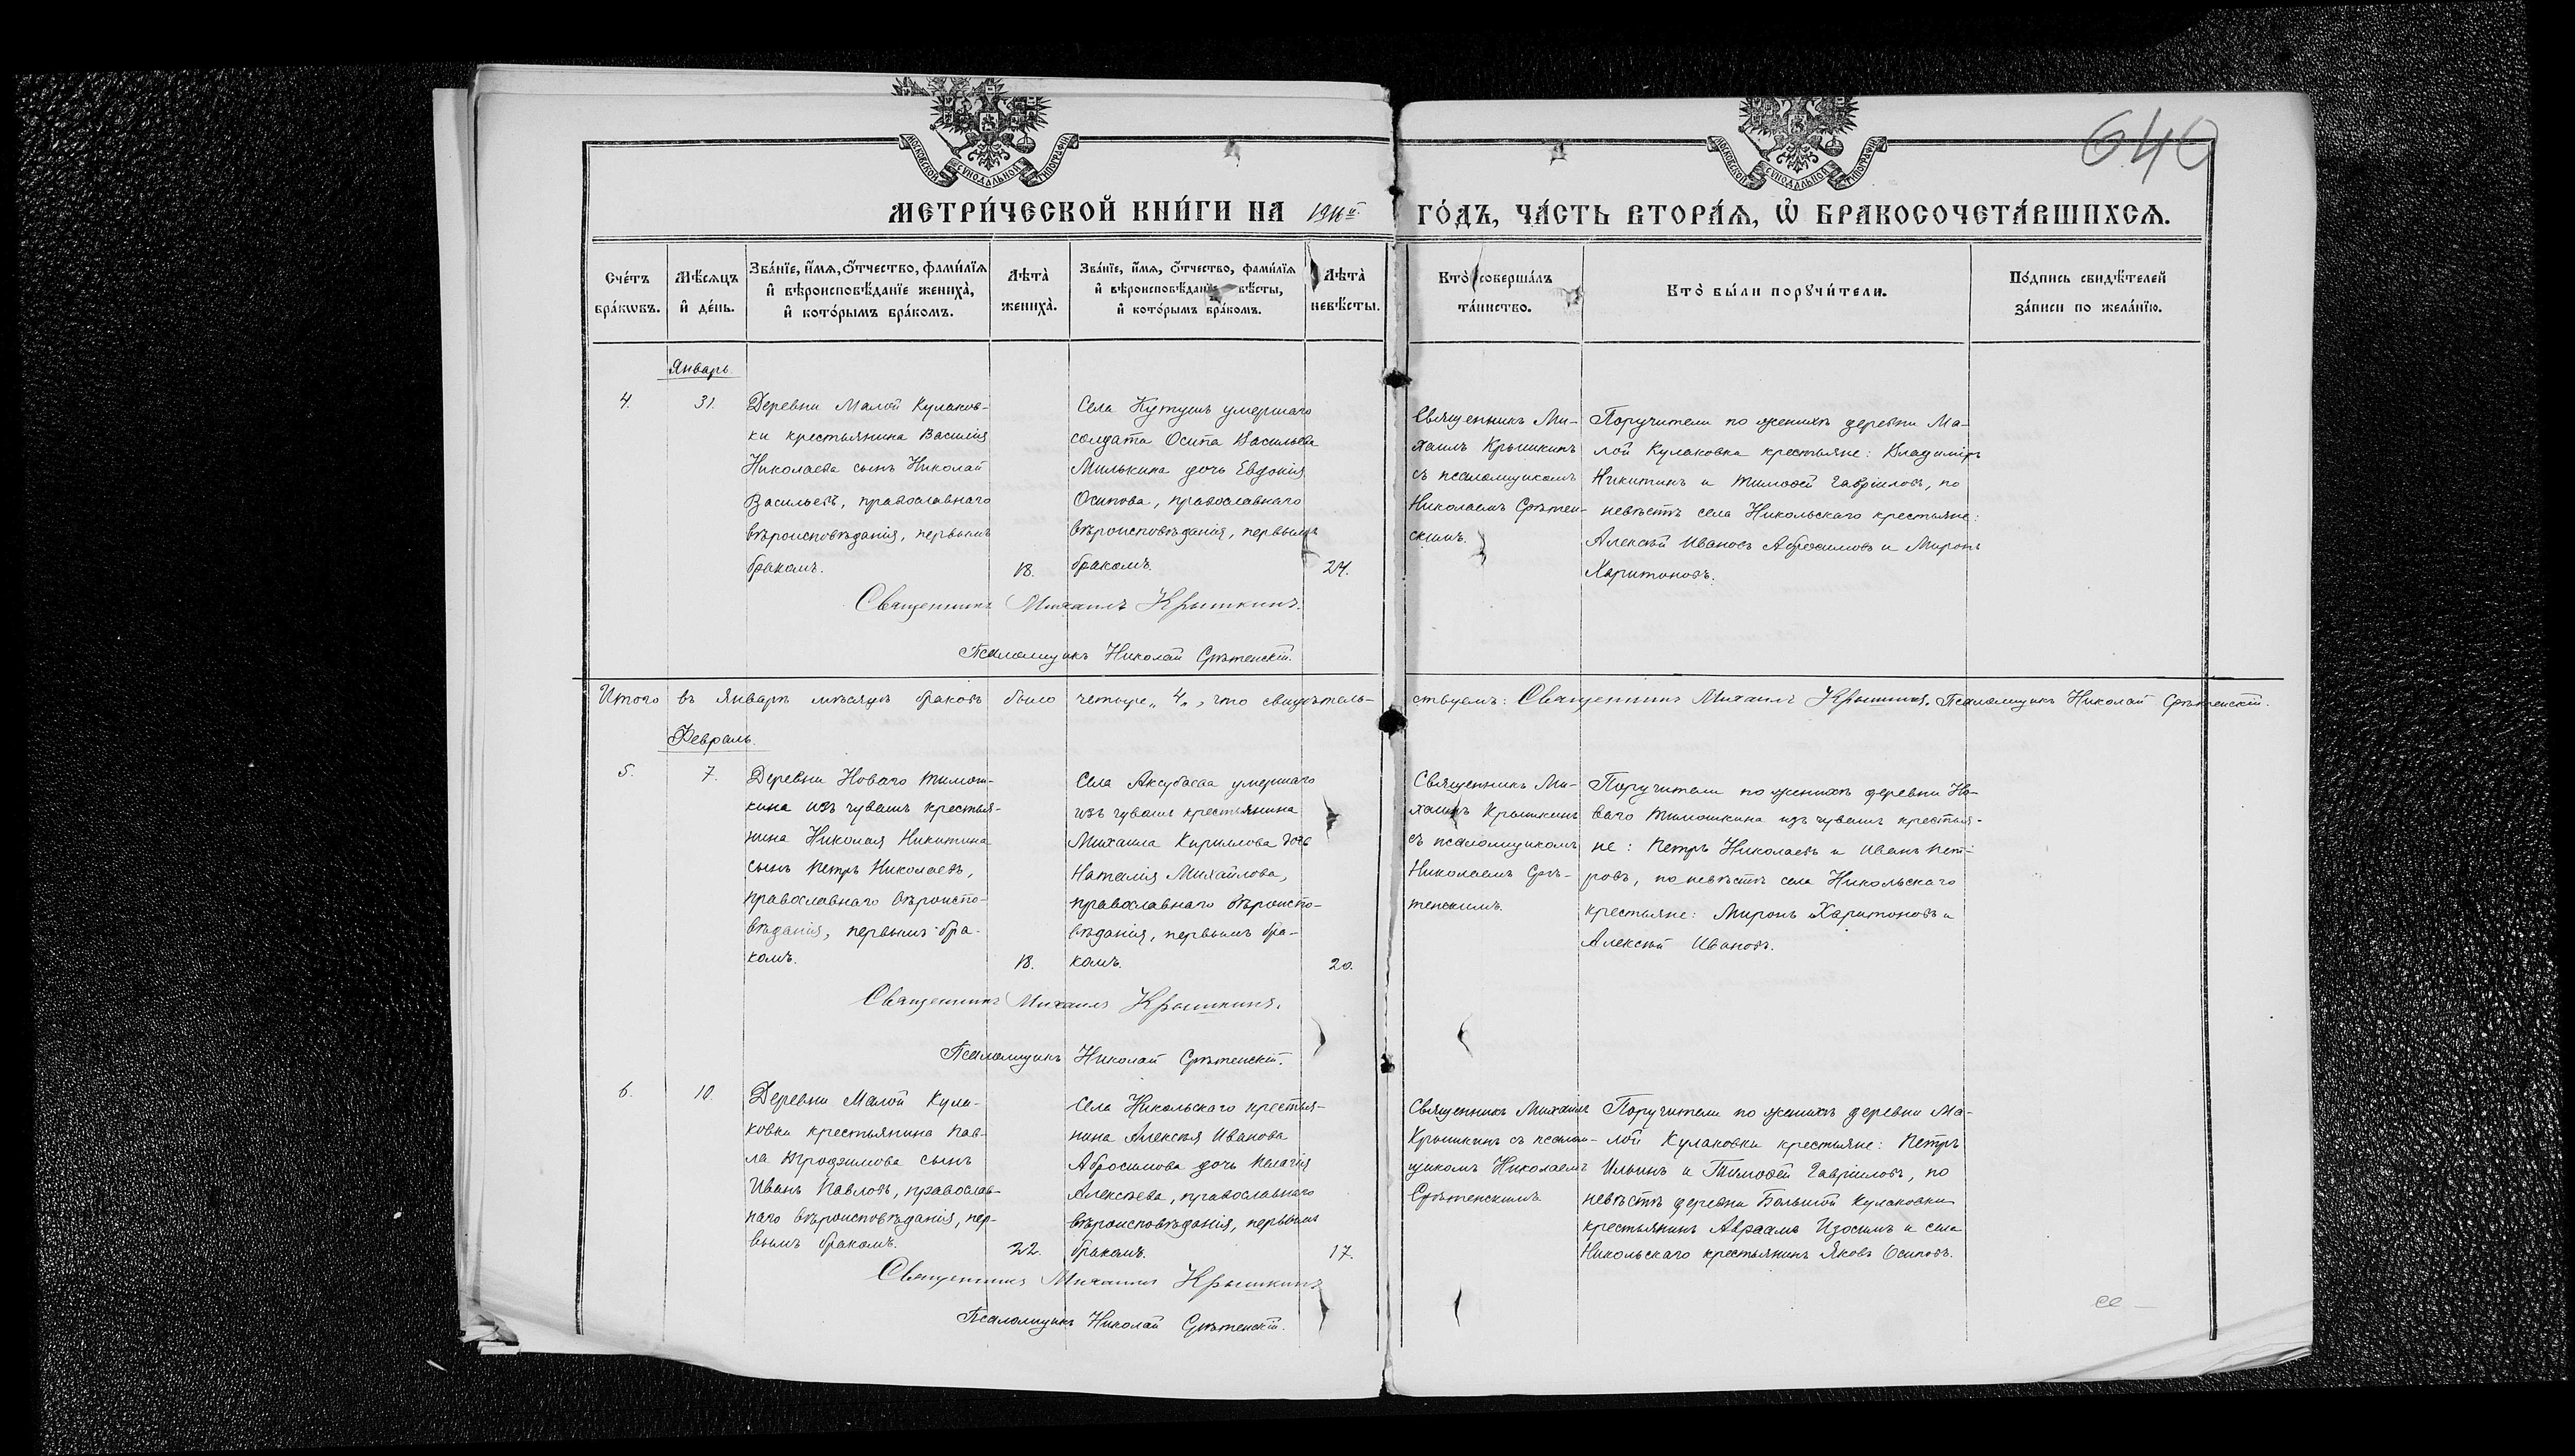 640
МОСКОВСКОЙ СУНОДАЛЬНОЙ ТИПОГРАФІИ
МОСКОВСКОЙ СУНОДАЛЬНОЙ ТИПОГРАФІИ
МЕТРИ́ЧЕСКОЙ КНИ́ГИ НА 1916й ГО́ДЪ, ЧА́СТЬ ВТОРА́Ѧ, Ѡ҆ БРАКОСОЧЕТА́ВШИХСѦ.
Сче́тъ
бра́кѡвъ.
Мѣ́сѧцъ
и҆ де́нь.
Зва́нїе, и҆́мѧ, ѻ҆́тчество, фами́лїѧ
и҆ вѣроисповѣ́данїе жениха̀,
и҆ кото́рымъ бра́комъ.
Лѣта̀
жениха̀.
Зва́нїе, и҆́мѧ, ѻ҆́тчество, фами́лїѧ
и҆ вѣроисповѣ́данїе вѣ́сты,
и҆ кото́рымъ бра́комъ.
Лѣта̀
невѣ́сты.
Кто̀ соверша́лъ
та́инство.
Кто̀ бы́ли порꙋчи́тели.
По́дпись свидѣ́телей
за́писи по жела́нїю.
Январь.
4.
31.
Деревни Малой Кулаков-
ки крестьянина Василія
Николаева сынъ Николай
Васильевъ, православнаго
вѣроисповѣданія, первымъ
бракомъ.
18.
Села Кутушъ умершаго
солдата Осипа Васильева
Милькина дочь Евдокія
Осипова, православнаго
вѣроисповѣданія, первымъ
бракомъ.
24.
Священникъ Ми-
хаилъ Крышкинъ
съ псаломщикомъ
Николаемъ Срѣтен-
скимъ.
Поручители по женихѣ деревни Ма-
лой Кулаковка крестьяне: Владиміръ
Никитинъ и Тимоѳей Гавріиловъ, по
невѣстѣ села Никольскаго крестьяне:
Алексѣй Ивановъ Абросимовъ и Миронъ
Харитоновъ.
Священникъ Михаилъ Крышкинъ.
Псаломщикъ Николай Срѣтенскій.
Итого въ Январѣ мѣсяцѣ браковъ было четыре „4„, что свидѣтель-
ствуемъ: Священникъ Михаилъ Крышкинъ. Псаломщикъ Николай Срѣтенскій.
Февраль.
5.
7.
Деревни Новаго Тимош-
кина изъ чувашъ крестья-
нина Николая Никитина
сынъ Петръ Николаевъ,
православнаго вѣроиспо-
вѣданія, первымъ бра-
комъ.
18.
Села Аксубаева умершаго
изъ чувашъ крестьянина
Михаила Кириллова дочь
Наталія Михайлова,
православнаго вѣроиспо-
вѣданія, первымъ бра-
комъ.
20.
Священникъ Ми-
хаилъ Крышкинъ
съ псаломщикомъ
Николаемъ Срѣ-
тенскимъ.
Поручители по женихѣ деревни Но-
ваго Тимошкина изъ чувашъ крестья-
не: Петръ Николаевъ и Иванъ Пет-
ровъ, по невѣстѣ села Никольскаго
крестьяне: Миронъ Харитоновъ и
Алексѣй Ивановъ.
Священникъ Михаилъ Крышкинъ.
Псаломщикъ Николай Срѣтенскій.
6.
10.
Деревни Малой Кула-
ковки крестьянина Пав-
ла сынъ
Иванъ Павловъ, православ-
наго вѣроисповѣданія, пер-
вымъ бракомъ.
22.
Села Никольскаго крестья-
нина Алексѣя Иванова
Абросимова дочь Пелагія
Алексѣева, православнаго
вѣроисповѣданія, первымъ
бракомъ.
17.
Священникъ Михаилъ
Крышкинъ съ псалом-
щикомъ Николаемъ
Срѣтенскимъ
Поручители по женихѣ деревни Ма-
лой Кулаковки крестьяне: Петръ
Ильинъ и Тимоѳей Гавріиловъ, по
невѣстѣ деревни Большой Кулаковки
крестьянинъ Авраамъ Изосимъ и села
Никольскаго крестьянинъ Яковъ Осиповъ.
Священникъ Михаилъ Крышкинъ
Псаломщикъ Николай Срѣтенскій.